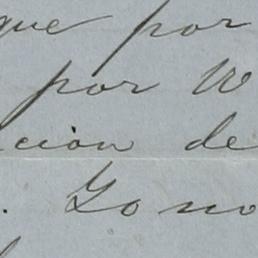 que por
por W
cion de
. Yo no